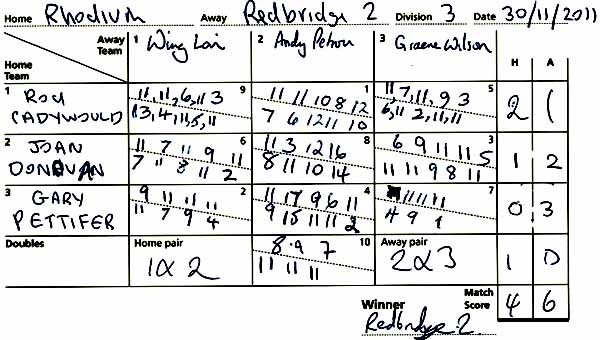 Home Rhodium Away Redbridge 2 Division 3 Date 30/11/2011
Away Team 1 Wing Lai 2 Andy Petrou 3 Graeme Wilson H A
Home Team
1 ROD CADYWOULD 9 1 5 2 1
11, 11, 6, 11 3 11 11 10 8 12 11 7, 11, 9 3
13, 4, 11, 5, 11 7 6 12 11 10 6, 11 2, 11, 11
2 JOAN DONOVAN 6 8 3 1 2
11 7 11 9 11 11 3 12 16 6 9 11 11 5
7 11 8 11 2 8 11 10 14 11 11 9 8 11
3 GARY PETTIFER 2 4 7 0 3
9 11 11 11 11 17 9 6 11 11 11 11
11 7 9 4 9 15 11 11 2 4 9 1
Doubles Home pair 10 Away pair 1 0
1 & 2 8 9 7 2 & 3
11 11 11
Winner Match Score 4 6
Redbridge 2